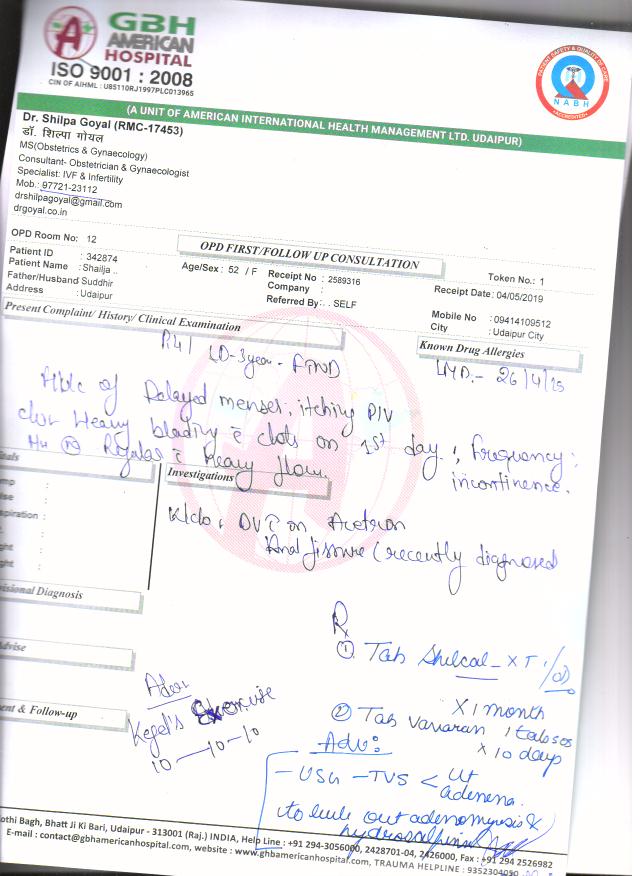 GBH
AMERICAN
HOSPITAL
ISO 9001 : 2008
CIN OF AIHML : U85110RJ1997PLC013965
PATIENT SAFETY & QUALITY OF CARE
NABH
ACCREDITED
(A UNIT OF AMERICAN INTERNATIONAL HEALTH MANAGEMENT LTD. UDAIPUR)
Dr. Shilpa Goyal (RMC-17453)
डॉ. शिल्पा गोयल
MS(Obstetrics & Gynaecology)
Consultant- Obstetrician & Gynaecologist
Specialist: IVF & Infertility
Mob.: 97721-23112
drshilpagoyal@gmail.com
drgoyal.co.in
OPD Room No: 12
OPD FIRST/FOLLOW UP CONSULTATION
Token No.: 1
Patient ID : 342874
Patient Name : Shailja ..
Age/Sex : 52 / F
Receipt No : 2589316
Receipt Date : 04/05/2019
Father/Husband Suddhir
Company :
Address : Udaipur
Referred By : . . SELF
Mobile No : 09414109512
City : Udaipur City
Present Complaint/ History/ Clinical Examination
Known Drug Allergies
LD-3year - FTND
LMD.- 26/4/
of Delayed menses, itching PIV
Heavy bleeding c clots on 1st day, frequency,
Regular c Heavy flow. incontinence.
Investigations
K/c/o DVT on Acetron
And fissure (recently diagnosed
isional Diagnosis
dvise
ent & Follow-up
Rx
① Tab Shelcal - X T 1/OD
X 1 month
② Tab 1 tab SOS
X 10 days
Kegel's Exercise
10 — 10 - 10
Adv:
- USG - TVS < Ut
adenexa
to rule out adenomyosis &
hydrosalpinx
othi Bagh, Bhatt Ji Ki Bari, Udaipur - 313001 (Raj.) INDIA, Help Line : +91 294-3056000, 2428701-04, 2426000, Fax : +91 294 2526982
E-mail : contact@gbhamericanhospital.com, website : www.gbhamericanhospital.com, TRAUMA HELPLINE : 9352304050